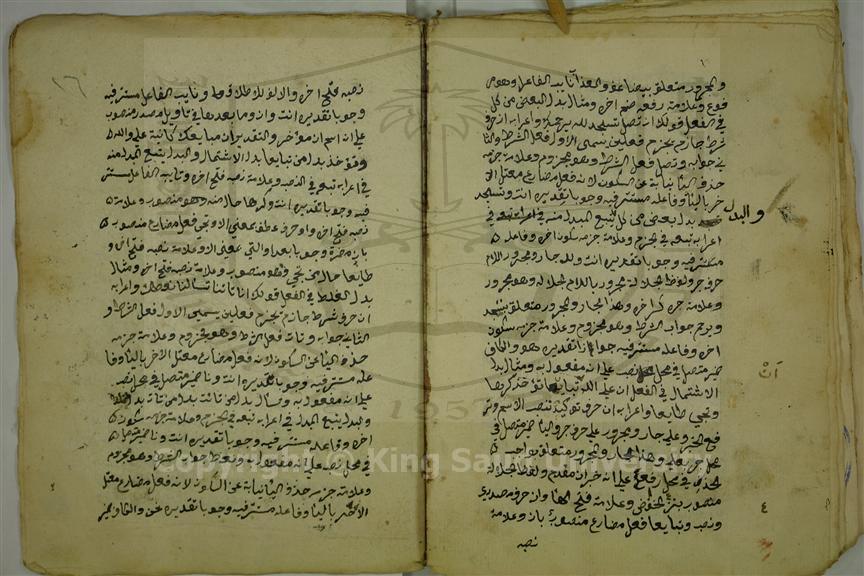 والمجرور متعلق بيضاعف والعذاب نايب الفاعل وهو مر
فوع وعلامة رفعه ضم اخره ومثال بدل البعض من كل
في الفعل قولك ان تصل تسجد لله يرحمك واعرابه ان حرف
شرط جازم يجزم فعلين يسمى الاول فعل الشرط والثا
ني جوابه وتصل فعل الشرط وهو مجزوم وعلامة جزمه
حذف اليا نيابة عن السكون لانه فعل مضارع معتل الا
خر باليا وفاعله مستتر فيه وجوبا تقديره انت وتسجد
بدل بعض من كل والبدل يتبع المبدل منه في اعرابه تبعه في
اعرابه تبعه في الجزم وعلامة جزمه سكون اخره وفاعله
مستتر فيه وجوبا تقديره انت ولله جار ومجرور اللام
حرف جر ولفظ الجلالة مجرور باللام الجلالة وهو مجرور
وعلامة جره كسر اخره وهذا الجار والمجرور متعلق بتسجد
ويرحم جواب الشرط وهو مجزوم وعلامة جزمه سكون
اخره وفاعله مستتر فيه جوازا تقديره هو والكاف
ضمير متصل في محل نصب على انه مفعول به ومثال بدل
الاشتمال في الفعل ان علي الله ان تبايعا تؤخذ كرها
او تجي طايعا واعرابه ان حرف توكيد تنصب الاسم وتر
فع الخبر وعلي جار ومجرور على حرف جر واليا ضمير متصل في
محل جر بعلى وهذا الجار والمجرور متعلق بواجب
المحذوف في محل رفع على انه خبر ان مقدم ولفظ الجلالة
منصوب بنزع الخافض وعلامة نصبه فتح الها وان حرف مصدري
ونصب وتبايعا فعل مضارع منصوب بان وعلامة
نصبه
والبدل
أن
٤
١٦
نصبه فتح اخره والالف للاطلاق ونايب الفاعل مستتر فيه
وجوبا تقديره انت وان وما بعدها في تاويل مصدر منصوب
على انه اسم ان مؤخر والتقدير ان مبايعتك كائنة علي والله
وتؤخذ بدل من تبايعا بدل الاشتمال والبدل يتبع المبدل منه
في اعرابه تبعه في النصب وعلامة نصبه فتح اخره ونايب الفاعل مستتر
فيه وجوبا تقديره انت وكرها حال منه وهو منصوب وعلامة
نصبه فتح اخره واو حرف عطف بمعنى الا وتجي فعل مضارع منصوب
بان مضمرة وجوبا بعد او التي بمعنى الا وعلامة نصبه فتح اخره و
طايعا حال من تجي وهو منصوب وعلامة نصبه فتح اخره ومثال
بدل الغلط في الفعل قولك ان تاتنا تسالنا نعطك واعرابه
ان حرف شرط جازم يجزم فعلين يسمى الاول فعل الشرط و
الثاني جوابه وتات فعل الشرط وهو مجزوم وعلامة جزمه
حذف اليا عن السكون لانه فعل مضارع معتل الاخر باليا وفا
عله مستتر فيه وجوبا تقديره انت ونا ضمير متصل في محل نصب
على انه مفعول به وتسال بدل من تات بدل الغلط
والبدل يتبع المبدل في اعرابه تبعه في الجزم وعلامة جزمه سكون
اخره وفاعله مستتر فيه وجوبا تقديره انت ونا ضمير متصل
في محل نصب على انه مفعول به ونعط جواب الشرط وهو مجزوم
وعلامة جزمه حذف اليا نيابة عن السكون لانه فعل مضارع معتل
الاخر باليا وفاعله مستتر فيه وجوبا تقديره نحن والكاف ضمير
1957
Copyright © King Saud University